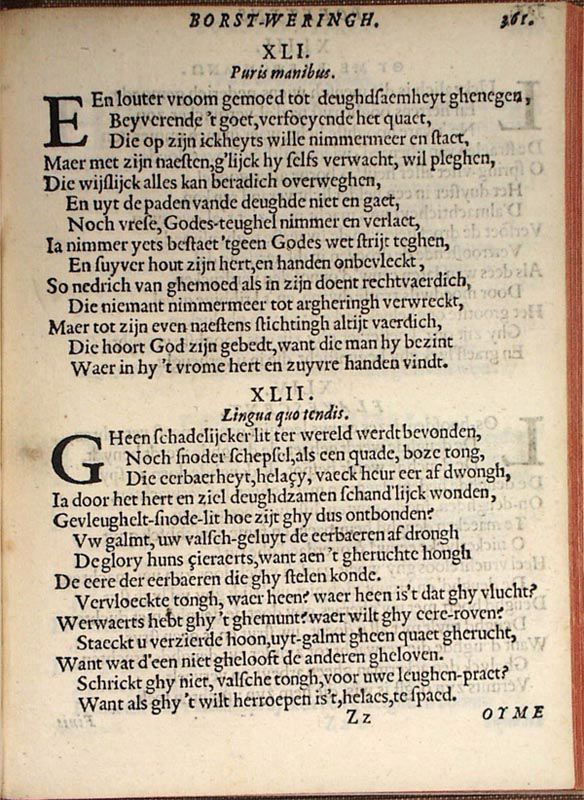 BORST-WERINGH. 361.
XLI.
Puris manibus.
EEn louter vroom gemoed tot deughdsaemheyt ghenegen,
Beyverende 't goet, verfoeyende het quaet,
Die op zijn ickheyts wille nimmermeer en staet,
Maer met zijn naesten, g'lijck hy selfs verwacht, wil pleghen,
Die wijslijck alles kan beradich overweghen,
En uyt de paden vande deughde niet en gaet,
Noch vrese, Godes-teughel nimmer en verlaet,
Ia nimmer yets bestaet 'tgeen Godes wet strijt teghen,
En suyver hout zijn hert, en handen onbevleckt,
So nedrich van ghemoed als in zijn doent rechtvaerdich,
Die niemant nimmermeer tot argheringh verwreckt,
Maer tot zijn even naestens stichtingh altijt vaerdich,
Die hoort God zijn gebedt, want die man hy bezint
Waer in hy 't vrome hert en zuyvre handen vindt.
XLII.
Lingua quo tendis.
GHeen schadelijcker lit ter wereld werdt bevonden,
Noch snoder schepsel, als een quade, boze tong,
Die eerbaerheyt, helaçy, vaeck heur eer af dwongh,
Ia door het hert en ziel deughdzamen schand'lijck wonden,
Gevleughelt-snode-lit hoe zijt ghy dus ontbonden?
Vw galmt, uw valsch-geluyt de eerbaeren af drongh
De glory huns çieraerts, want aen 't gheruchte hongh
De eere der eerbaeren die ghy stelen konde.
Vervloeckte tongh, waer heen? waer heen is't dat ghy vlucht?
Werwaerts hebt ghy 't ghemunt? waer wilt ghy eere-roven?
Staeckt u verzierde hoon, uyt-galmt gheen quaet gherucht,
Want wat d'een niet ghelooft de anderen gheloven.
Schrickt ghy niet, valsche tongh, voor uwe leughen-praet?
Want als ghy 't wilt herroepen is't, helaes, te spaed.
Zz OYME